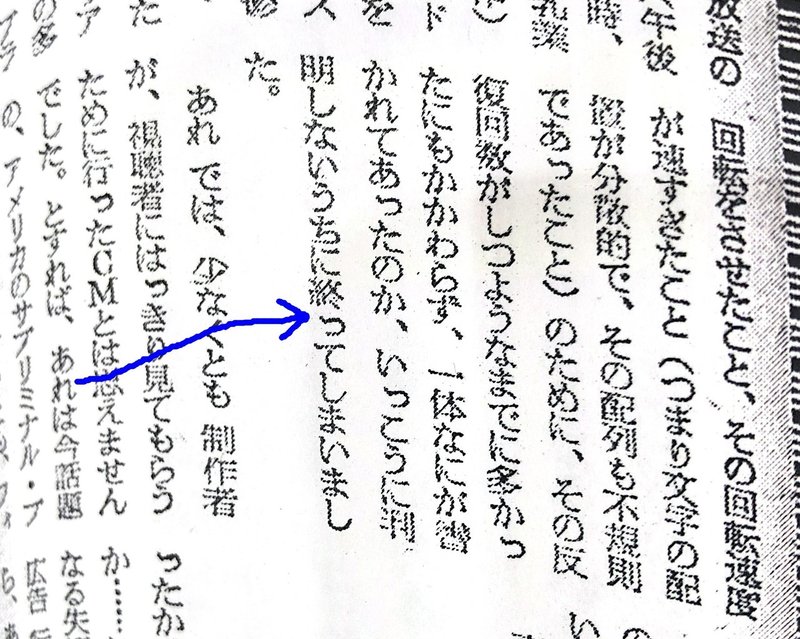 回転をさせたこと、その回転速度
が速すぎたこと（つまり文字の配
置が分散的で、その配列も不規則
であったこと）のために、その反
復回数がしつようなまでに多かっ
たにもかかわらず、一体なにが書
かれてあったのか、いっこうに判
明しないうちに終ってしまいまし
た。
あれでは、少なくとも制作者
が、視聴者にはっきり見てもらう
ために行ったCMとは思えません
でした。とすれば、あれは今話題
の、アメリカのサブリミナル・ア
放送の
午後
時、
ド
を
ス
た
ア
の多
ったか
か……
なる失
広告
の
い